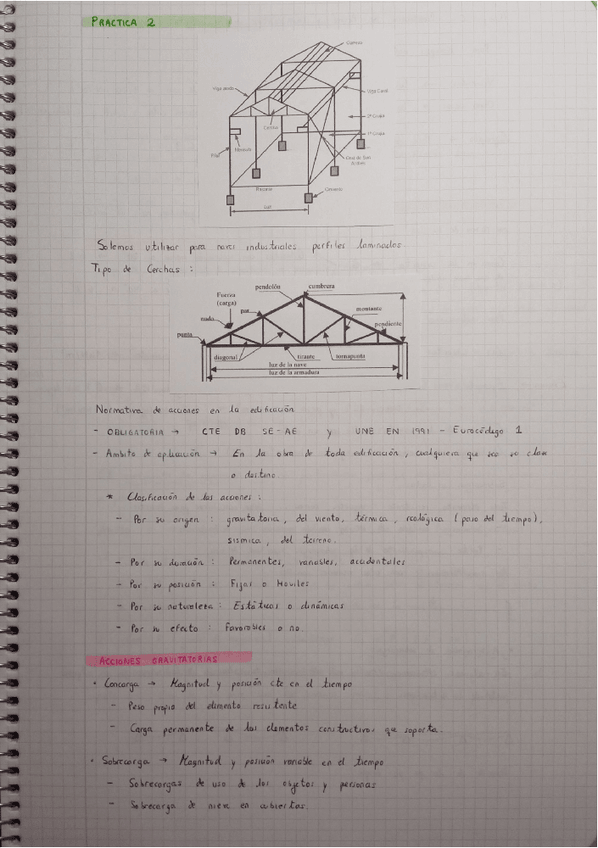 PRACTICA 2
Correas
Viga atado
Viga Carril
Cercha
1ª Grúa
Ménsula
Pilar
Cruz de San Andrés
Cimiento
Luz
Solemos utilizar para naves industriales perfiles laminados.
Tipo de Cerchas :
pendolón
cumbrera
Fuerza
(carga)
nudo
par
montante
pendiente
punta
diagonal
tirante
tornapunta
luz de la nave
luz de la armadura
Normativa de acciones en la edificación
- OBLIGATORIA → CTE DB SE-AE y UNE EN 1991 - Eurocódigo 1
- Ámbito de aplicación → En la obra de toda edificación, cualquiera que sea su clase
o destino
* Clasificación de las acciones :
- Por su origen : gravitatoria, del viento, térmica, reológica (paso del tiempo),
sísmica, del terreno.
- Por su duración : Permanentes, variables, accidentales
- Por su posición : Fijas o Móviles
- Por su naturaleza : Estáticas o dinámicas
- Por su efecto : Favorables o no.
ACCIONES GRAVITATORIAS
• Concarga → Magnitud y posición cte en el tiempo
- Peso propio del elemento resistente
- Carga permanente de los elementos constructivos que soporta.
• Sobrecarga → Magnitud y posición variable en el tiempo
- Sobrecargas de uso de los objetos y personas
- Sobrecarga de nieve en cubiertas.